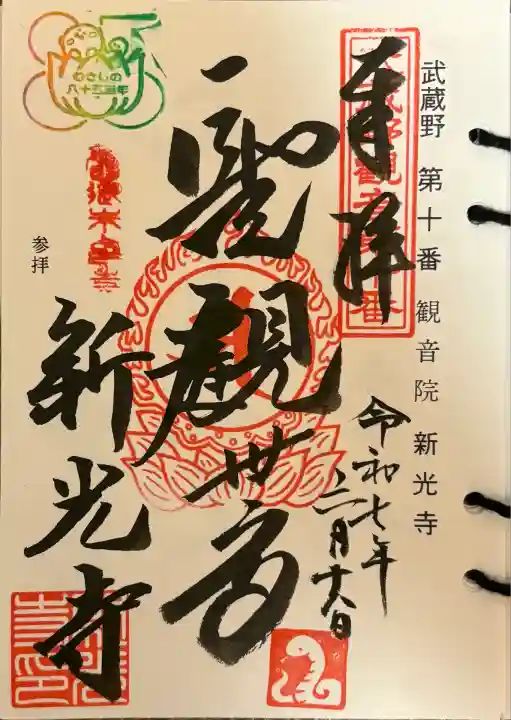 武蔵野 第十番 観音院 新光寺
奉拝
令和七年
三月十六日
聖觀世音
新光寺
むさしの
八十五周年
参拝